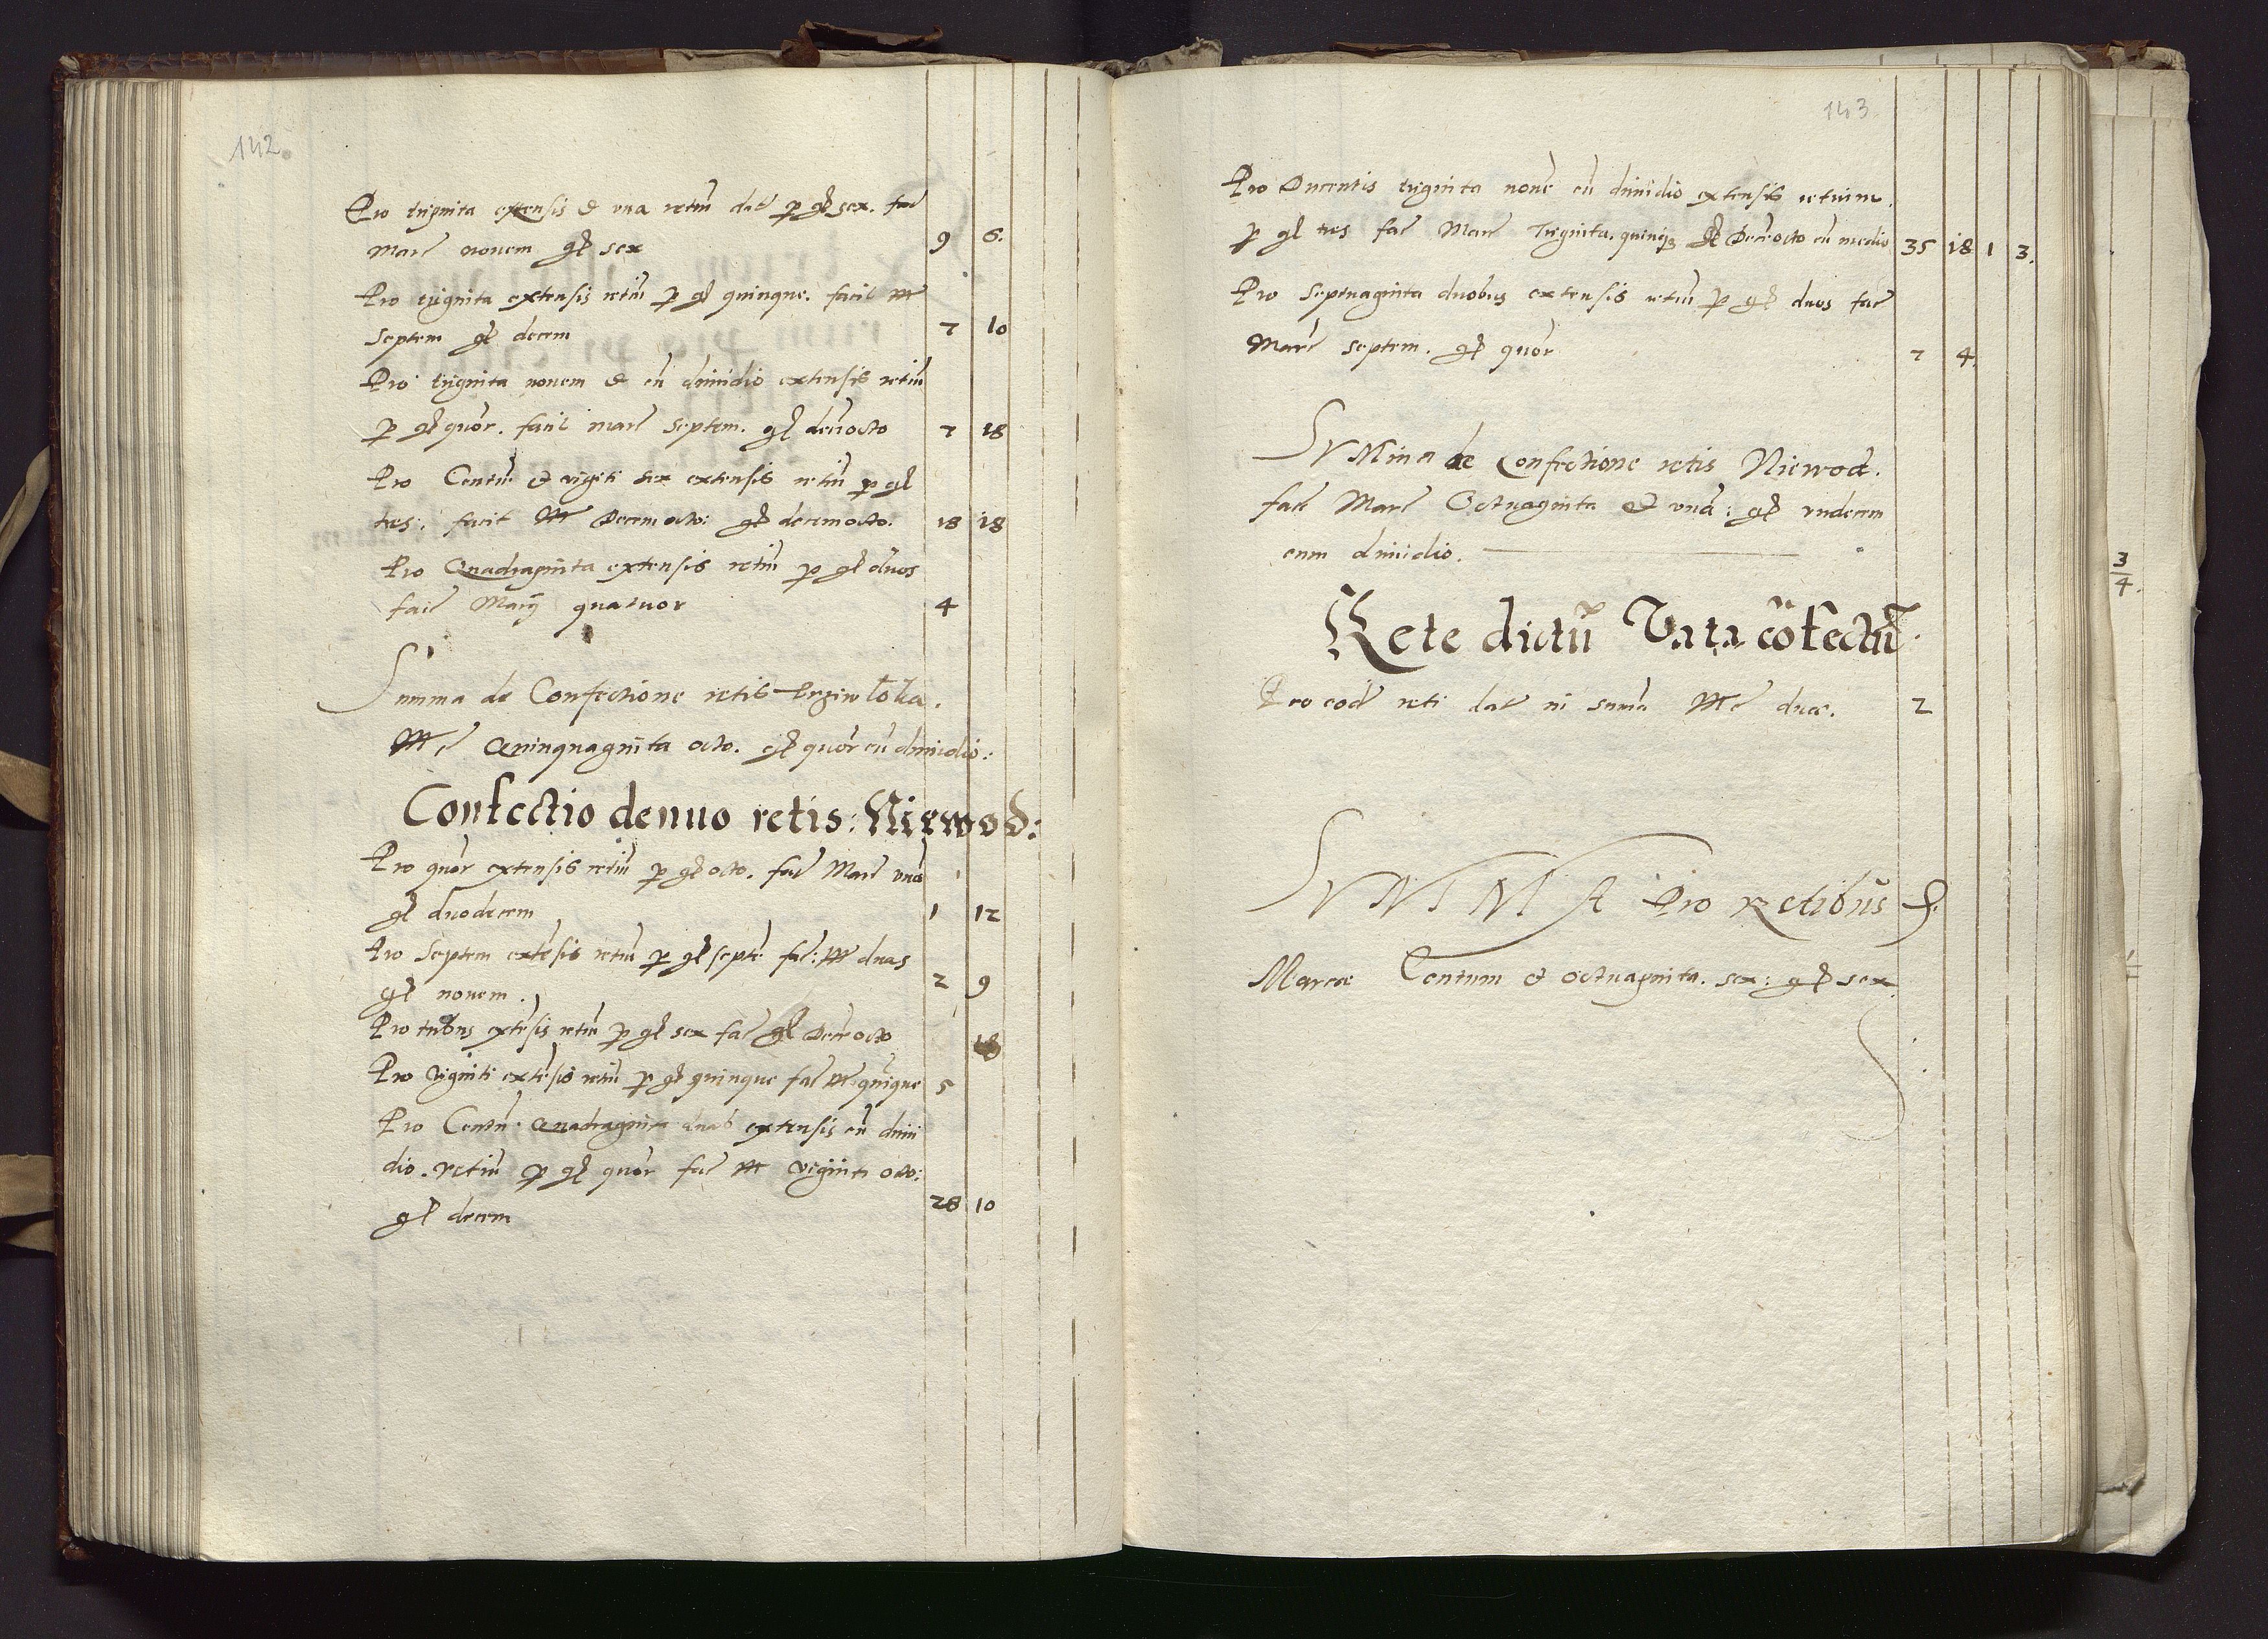 142
Pro triginta extensis et una retiu dat p gl sex. fac
Marc novem gl sex 9 6.
Pro triginta extensis retiu p gl quinque. facit M
septem gl decem 7 10
Pro triginta novem et cu dimidio extensis retiu
p gl quor. facit marc septem. gl decemocto 7 18
Pro Centu et vigiti sex extensis retiu p gl
tres: facit M Decem octo: gl decemocto. 18 18
Pro Quadraginta extensis retiu p gl duos
facit Marc quatuor 4
Summa de Confectione retis
Mc Quinquaginta octo. gl quor cu dimidio:
Confectio denuo retis: Niewod:
Pro quor extensis retiu p gl octo. fac Marc una
gl duodecem 1 12
Pro Septem extesis retiu p gl septe fac: M duas
gl novem. 2 9
Pro tribus extesis retiu p gl sex fac gl Decem octo 18
Pro viginti extesis retiu p gl quinque fac M quique 5
Pro Centu Quadraginta duab extensis cu dimi
dio. retiu p gl quor fac M viginti octo:
gl decem 28 10
143
Pro Ducentis triginta nove cu dimidio extensis retium.
p gl tres fac Marc Triginta. quinq gl Decem octo cu medio 35 18 1 3.
Pro Septuaginta duobus extensis retiu p gl duos fac
Marc septem. gl quor 7 4.
SVMma de Confectione retis Niewod.
fac Marc Octuaginta et una: gl undecem
cum dimidio.
Rete dictu Vata cofectu.
Pro eod reti dat in suma Mc duae. 2
SVMMA Pro Retibus
Marcae Centum et octuaginta. sex: gl sex
3
4.